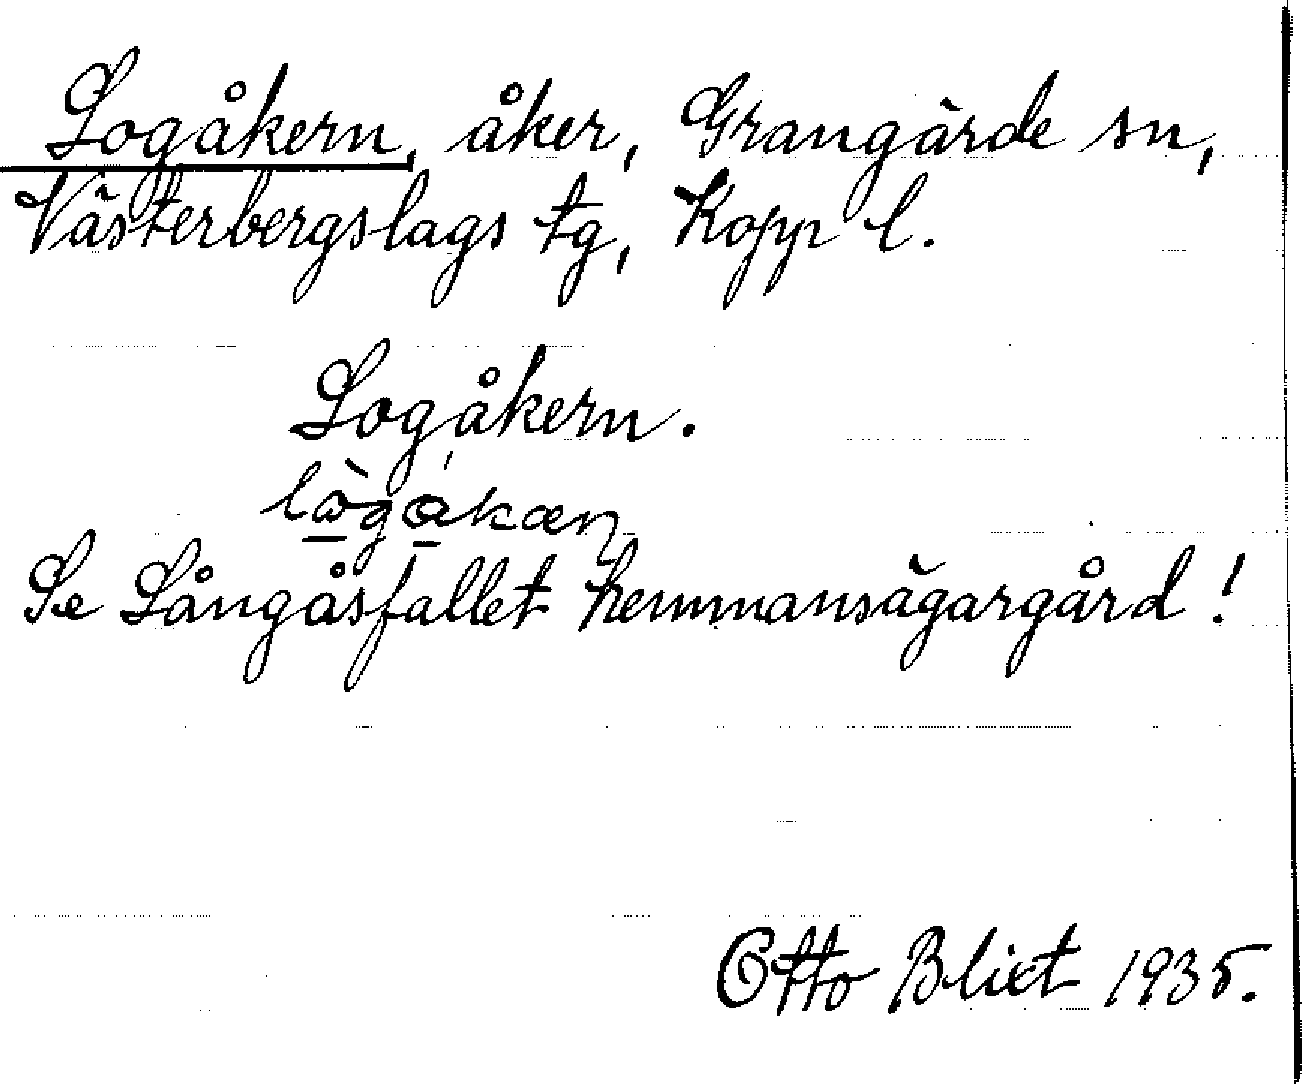 Logåkern, åker, Grangärde sn,
Västerbergslags tg, Kopp l.
Logåkern.
Se Långåsfallet hemmansägargård!
Otto Blixt 1935.